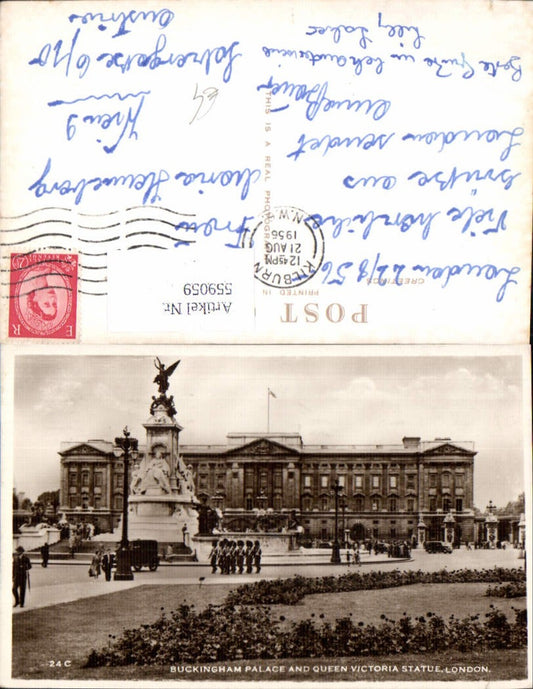 POST
GREETINGS
PRINTED IN
THIS IS A REAL PHOTOGRAPH
London 22/8 56
Viele herzliche
Grüße aus
London sendet
Anneliese
Bauer
Beste Grüße
Lilly
KILBURN
12.45PM
21 AUG
1956
N.W.6
E R
Artikel Nr.
559059
Frau
Maria
Wien 9
6/10
Austria
24 C
BUCKINGHAM PALACE AND QUEEN VICTORIA STATUE, LONDON.